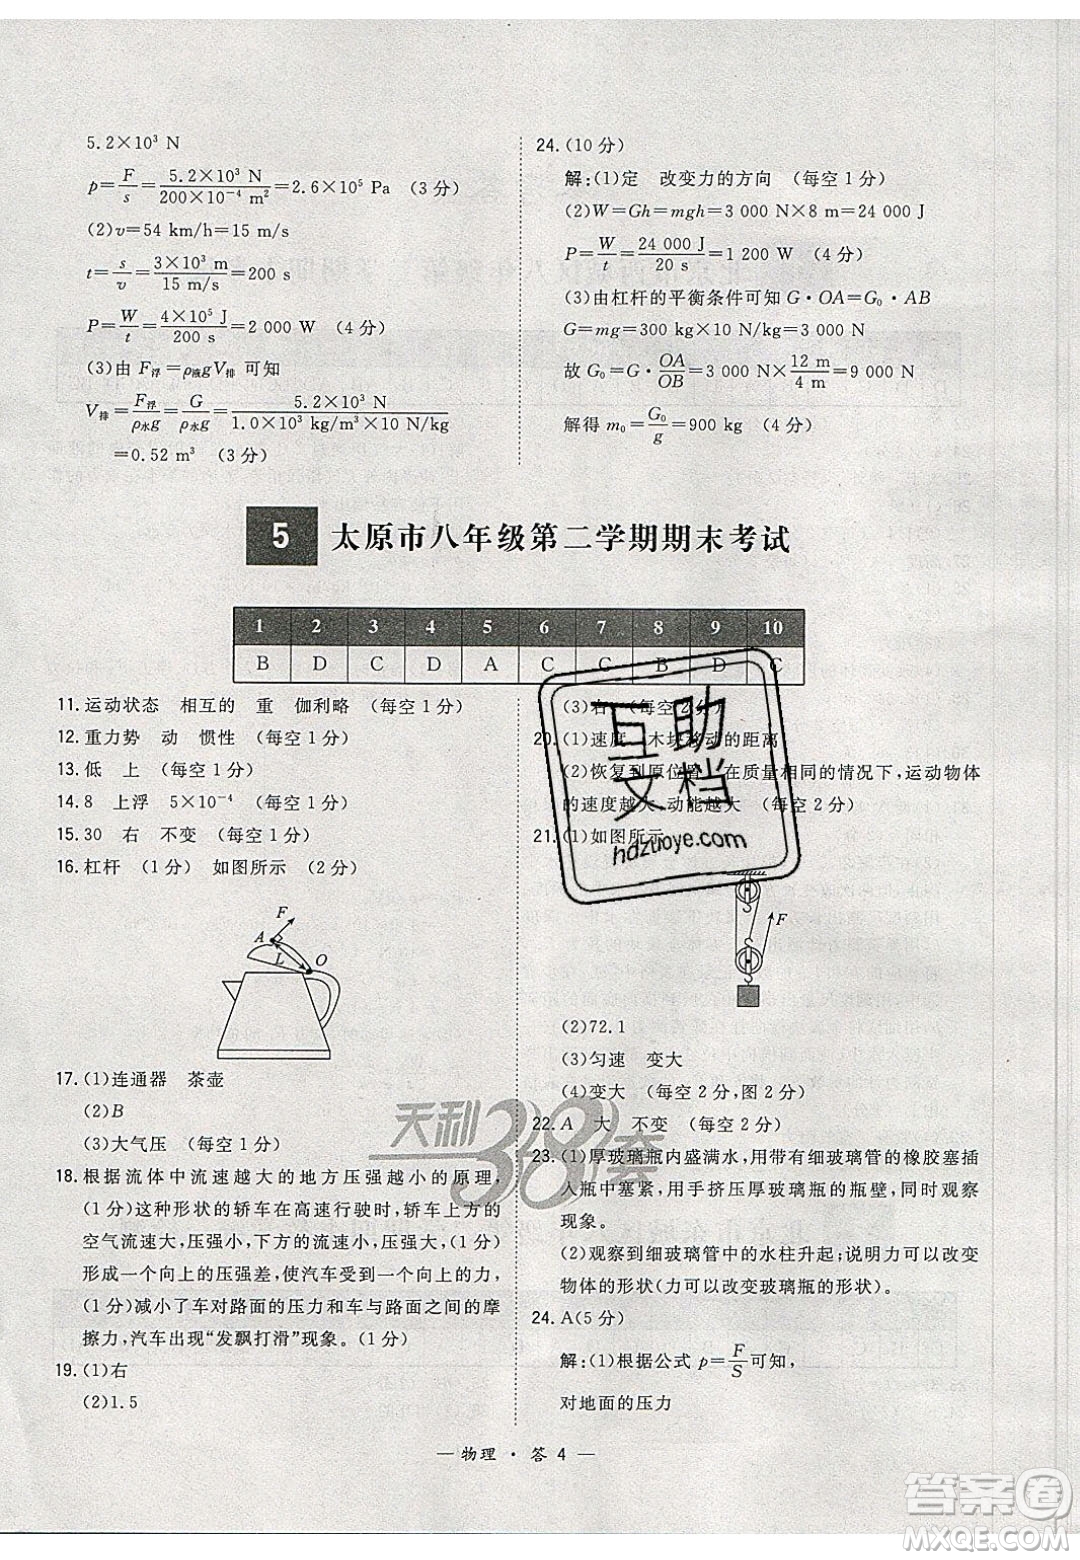 5.2×10³ N
p=F/s=5.2×10³ N/200×10⁻⁴ m²=2.6×10⁵ Pa (3分)
(2)v=54 km/h=15 m/s
t=s/v=3×10³ m/15 m/s=200 s
P=W/t=4×10⁵ J/200 s=2 000 W (4分)
(3)由 F浮=ρ液gV排 可知
V排=F浮/ρ水g=G/ρ水g=5.2×10³ N/1.0×10³ kg/m³×10 N/kg
=0.52 m³ (3分)
24.(10分)
解:(1)定 改变力的方向 (每空1分)
(2)W=Gh=mgh=3 000 N×8 m=24 000 J
P=W/t=24 000 J/20 s=1 200 W (3分)
(3)由杠杆的平衡条件可知 G·OA=G₀·OB
G=mg=300 kg×10 N/kg=3 000 N
故 G₀=G·OA/OB=3 000 N×12 m/4 m=9 000 N
解得 m₀=G₀/g=900 kg (4分)
5 太原市八年级第二学期期末考试
1 2 3 4 5 6 7 8 9 10
B D C D A C C B D C
11.运动状态 相互的 重 伽利略 (每空1分)
12.重力势 动 惯性 (每空1分)
13.低 上 (每空1分)
14.8 上浮 5×10⁻⁴ (每空1分)
15.30 右 不变 (每空1分)
16.杠杆 (1分) 如图所示 (2分)
F
A
L
O
17.(1)连通器 茶壶
(2)B
(3)大气压 (每空1分)
18.根据流体中流速越大的地方压强越小的原理,
(1分)这种形状的轿车在高速行驶时,轿车上方的
空气流速大,压强小,下方的流速小,压强大,(1分)
形成一个向上的压强差,使汽车受到向上的升力,
(1分)减小了车对路面的压力和车与路面之间的摩
擦力,汽车出现“发飘打滑”现象。(1分)
19.(1)右
(2)1.5
(3)右 (每空1分)
20.(1)速度 木块移动的距离
(2)恢复到原位置 在质量相同的情况下,运动物体
的速度越大,动能越大 (每空2分)
21.(1)如图所示
F
(2)72.1
(3)匀速 变大
(4)变大 (每空2分,图2分)
22.A 大 不变 (每空2分)
23.(1)厚玻璃瓶内盛满水,用带有细玻璃管的橡胶塞插
入瓶中塞紧,用手挤压厚玻璃瓶的瓶壁,同时观察
现象。
(2)观察到细玻璃管中的水柱升起;说明力可以改变
物体的形状(力可以改变玻璃瓶的形状)。
24.A(5分)
解:(1)根据公式 p=F/S可知,
对地面的压力
— 物理·答 4 —
互助
文档
hdzuoye.com
天利38套
答案圈
MXQE.COM